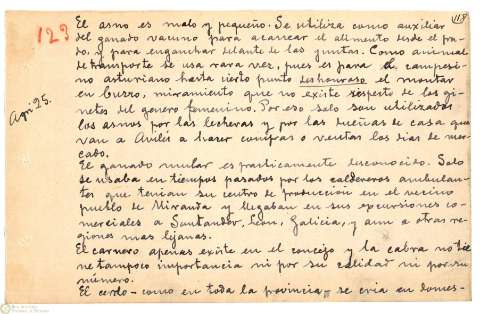 118
123
El asno es malo y pequeño. Se utiliza como auxiliar
del ganado vacuno para acarrear el alimento desde el pra-
do, y para enganchar delante de las yuntas. Como animal
de transporte se usa rara vez, pues es para el campesi-
no asturiano hasta cierto punto deshonroso el montar
en burro, miramiento que no existe respecto de los gi-
netes del género femenino. Por eso solo son utilizados
los asnos por las lecheras y por las dueñas de casa que
van a Avilés a hacer compras o ventas los días de mer-
cado.
Agri 25.
El ganado mular es practicamente desconocido. Solo
se usaba en tiempos pasados por los caldereros ambulan-
tes que tenian su centro de producción en el vecino
pueblo de Miranda y llegaban en sus excursiones co-
merciales a Santander, León, Galicia, y aun a otras re-
giones mas lejanas.
El carnero apenas existe en el concejo y la cabra no tie
ne tampoco importancia ni por su calidad ni por su
número.
El cerdo - como en toda la provincia - se cria en domes-